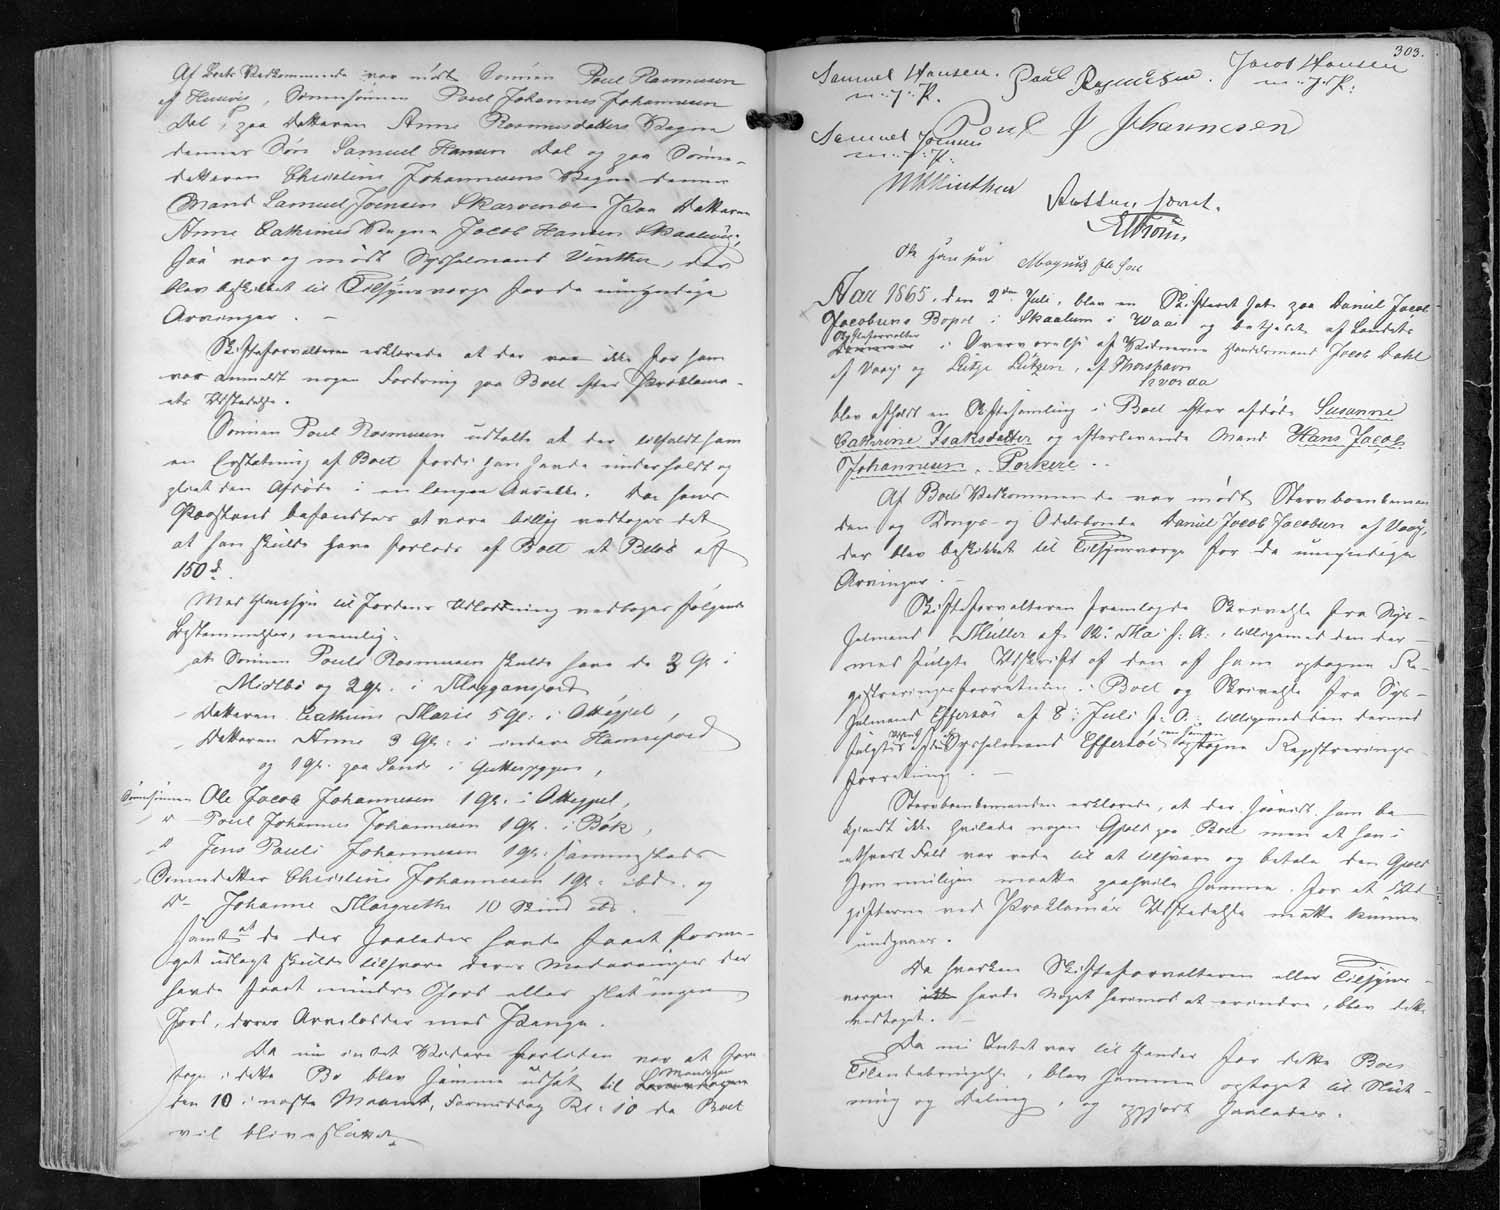 Af Boets Vedkommende var mødt Sønnen Poul Rasmusen
af Husevig, Sønnesønnen Poul Johannes Johannesen
Dal, paa Datteren Anne Rasmusdatters Vegne
dennes Søn Samuel Hansen Dal og paa Sønne-
datteren Christine Johannesens Vegne dennes
Mand Samuel Joensen Skarvenæs paa Datteren
Anne Cathrines Vegne Jacob Hansen Skaalevig,
saa var og mødt Sysselmand Vinther, der
blev beskikket til Tilsynsværge for de umyndige
Arvinger. -
Skifteforvalteren erklærede at der var ikke for ham
var anmeldt nogen Fordring paa Boet efter Proklama-
ets Udstedelse.
Sønnen Poul Rasmusen udtalte at der tilfaldt ham
en Erstatning af Boet fordi han havde underholdt og
pleiet den Afdøde i en længere Aarrække. Da hans
Paastand befandtes at være billig vedtoges det
at han skulde have forlods af Boet et Beløb af
150 d.
Med Hensyn til Jordens Udlodning vedtoges følgende
Bestemmelser, nemlig:
at Sønnen Pouli Rasmusen skulde have de 3 Gl. i
Midlbø og 2 gl. i
- Datteren Cathrine Marie 5 Gl. i
- Datteren Anne 3 Gl. i indere
og 1 Gl. paa Sands i
Sønnesønnen Ole Jacob Johannesen 1 Gl. i
- " - Poul Johannes Johannesen 1 Gl. i Bøk,
" Jens Pauli Johannesen 1 Gl. sammesteds
Sønnedatter Christine Johannesen 1 Gl. ibd. og
Do Johanne Margrethe 10 Skind ibd. -
samt at de der saaledes havde faaet for me-
get udlagt skulde tilsvare deres Medarvinger der
havde faaet mindre Jord eller slet ingen
Jord, deres Arvelodder med Penge.
Da nu intet Videre forløben var at fore-
tage i dette Bo blev samme udsat til Mandagen
den 10 i næste Maaned, Formiddag Kl. 10 da Boet
vil blive sluttet
303.
Samuel Hansen. Paul Rasmusen. Jacob Hansen
m. f. P. m. f. P.
Samuel Joensen Poul J Johannesen
m. f. P.
H Winther
Skiftet sluttet.
Ole Hansen Magnus
Aar 1865, den 2den Juli, blev en Skifteret sat paa Daniel Jacob
Jacobsens Bopæl i Skaalum i Waai og betjent af Landets
Skifteforvalter i Overværelse af Vidnerne Handelsmand Jacob Dahl
af Vaag og Lütje Lützen, af Thorshavn
hvorda
blev afholdt en Skiftesamling i Boet efter afdøde Susanne
Cathrine Isaksdatter og efterlevende Mand Hans Jacob
Johannesen, Porkere. -
Af Boets Vedkommende var mødt Stervboenkeman-
den og Kongs- og Odelsbonde Daniel Jacob Jacobsen af Vaag,
der blev beskikket til Tilsynsværge for de umyndige
Arvinger. -
Skifteforvalteren fremlagde Skrivelse fra Sys-
selmand Müller af 12. Mai f. A., tilligemed den der-
med fulgte Udskrift af den af ham optagne Re-
gistreringsforretning i Boet og Skrivelse fra Sys-
selmand Effersøe af 8. Juli f. A. tilligemed den dermed
fulgte Sysselmand Effersøe optagne Registrerings-
forretning. -
Stervboenkemanden erklærede, at der saavidt ham be-
kjendt ikke hvilede nogen Gjeld paa Boet men at han i
ethvert Fald var rede til at tilsvare og betale den Gjeld
som muligen maatte paahvile samme for at Ud-
gifterne ved Proklamas Udstedelse maatte kunne
undgaaes.
Da hverken Skifteforvalteren eller Tilsyns-
værgen havde Noget herimod at erindre, blev dette
vedtaget. -
Da nu Intet var til Hinder for dette Boes
Tilendebringelse, blev samme optaget til Slut-
ning og Deling, og opgjort saaledes.